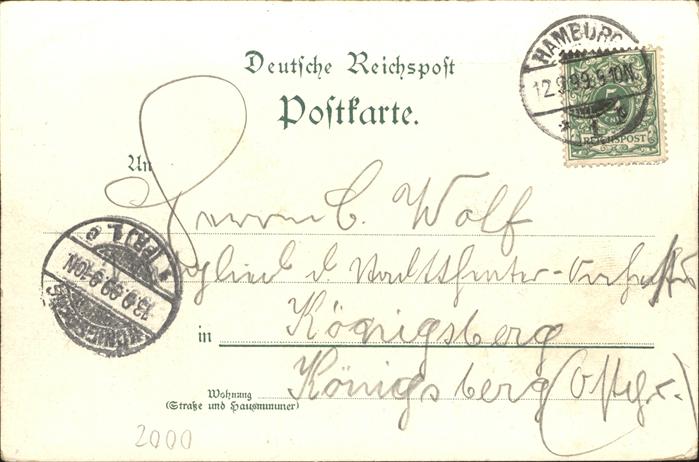 HAMBURG
12.9.99.5-10N.
* 1 *
5
REICHSPOST
Deutsche Reichspost
Postkarte.
An
Herrn C. Wolf
Mitglied d Stadttheater-Orchesters
in Königsberg
Königsberg (Ostpr.)
Wohnung
(Straße und Hausnummer)
KÖNIGSBERG
13.9.99.9-10N.
(PR.) 1. c
2000